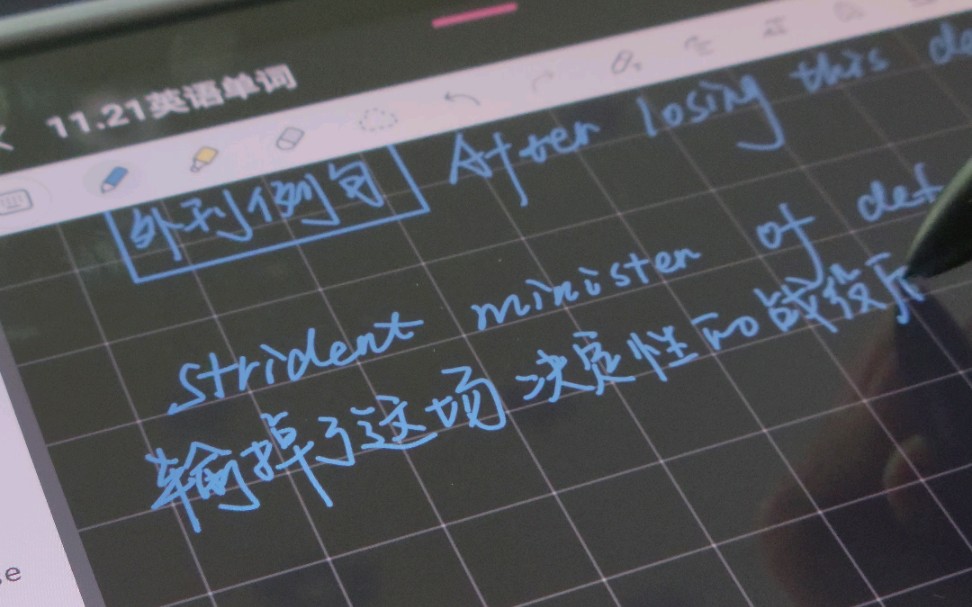 11.21英语单词
外刊例句 After losing this de
strident minister of def
输掉了这场决定性的战役后
se